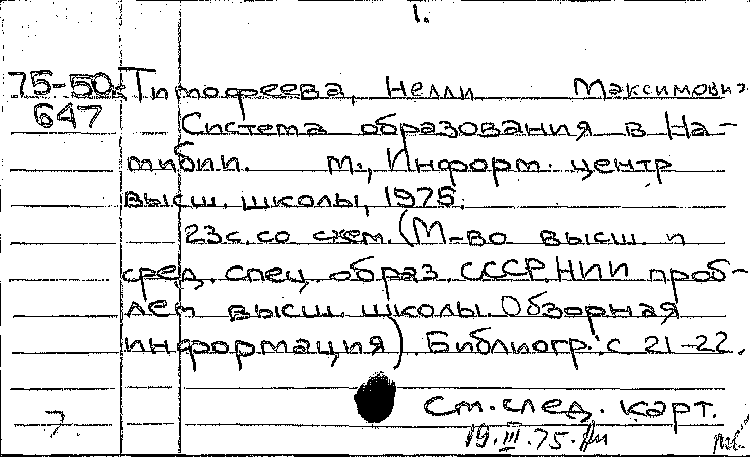 1.
75-50 Тимофеева, Нелли Максимовн.
647 Система образования в На-
мибии. М., Информ. центр
высш. школы, 1975.
23с. со схем. (М-во высш. и
сред. спец. образ. СССР. НИИ проб-
лем высш. школы. Обзорная
информация). Библиогр.: с. 21-22.
См. след. карт.
7. 19.III.75.